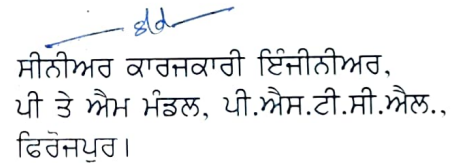 sld
ਸੀਨੀਅਰ ਕਾਰਜਕਾਰੀ ਇੰਜੀਨੀਅਰ,
ਪੀ ਤੇ ਐਮ ਮੰਡਲ, ਪੀ.ਐਸ.ਟੀ.ਸੀ.ਐਲ.,
ਫਿਰੋਜਪੁਰ।